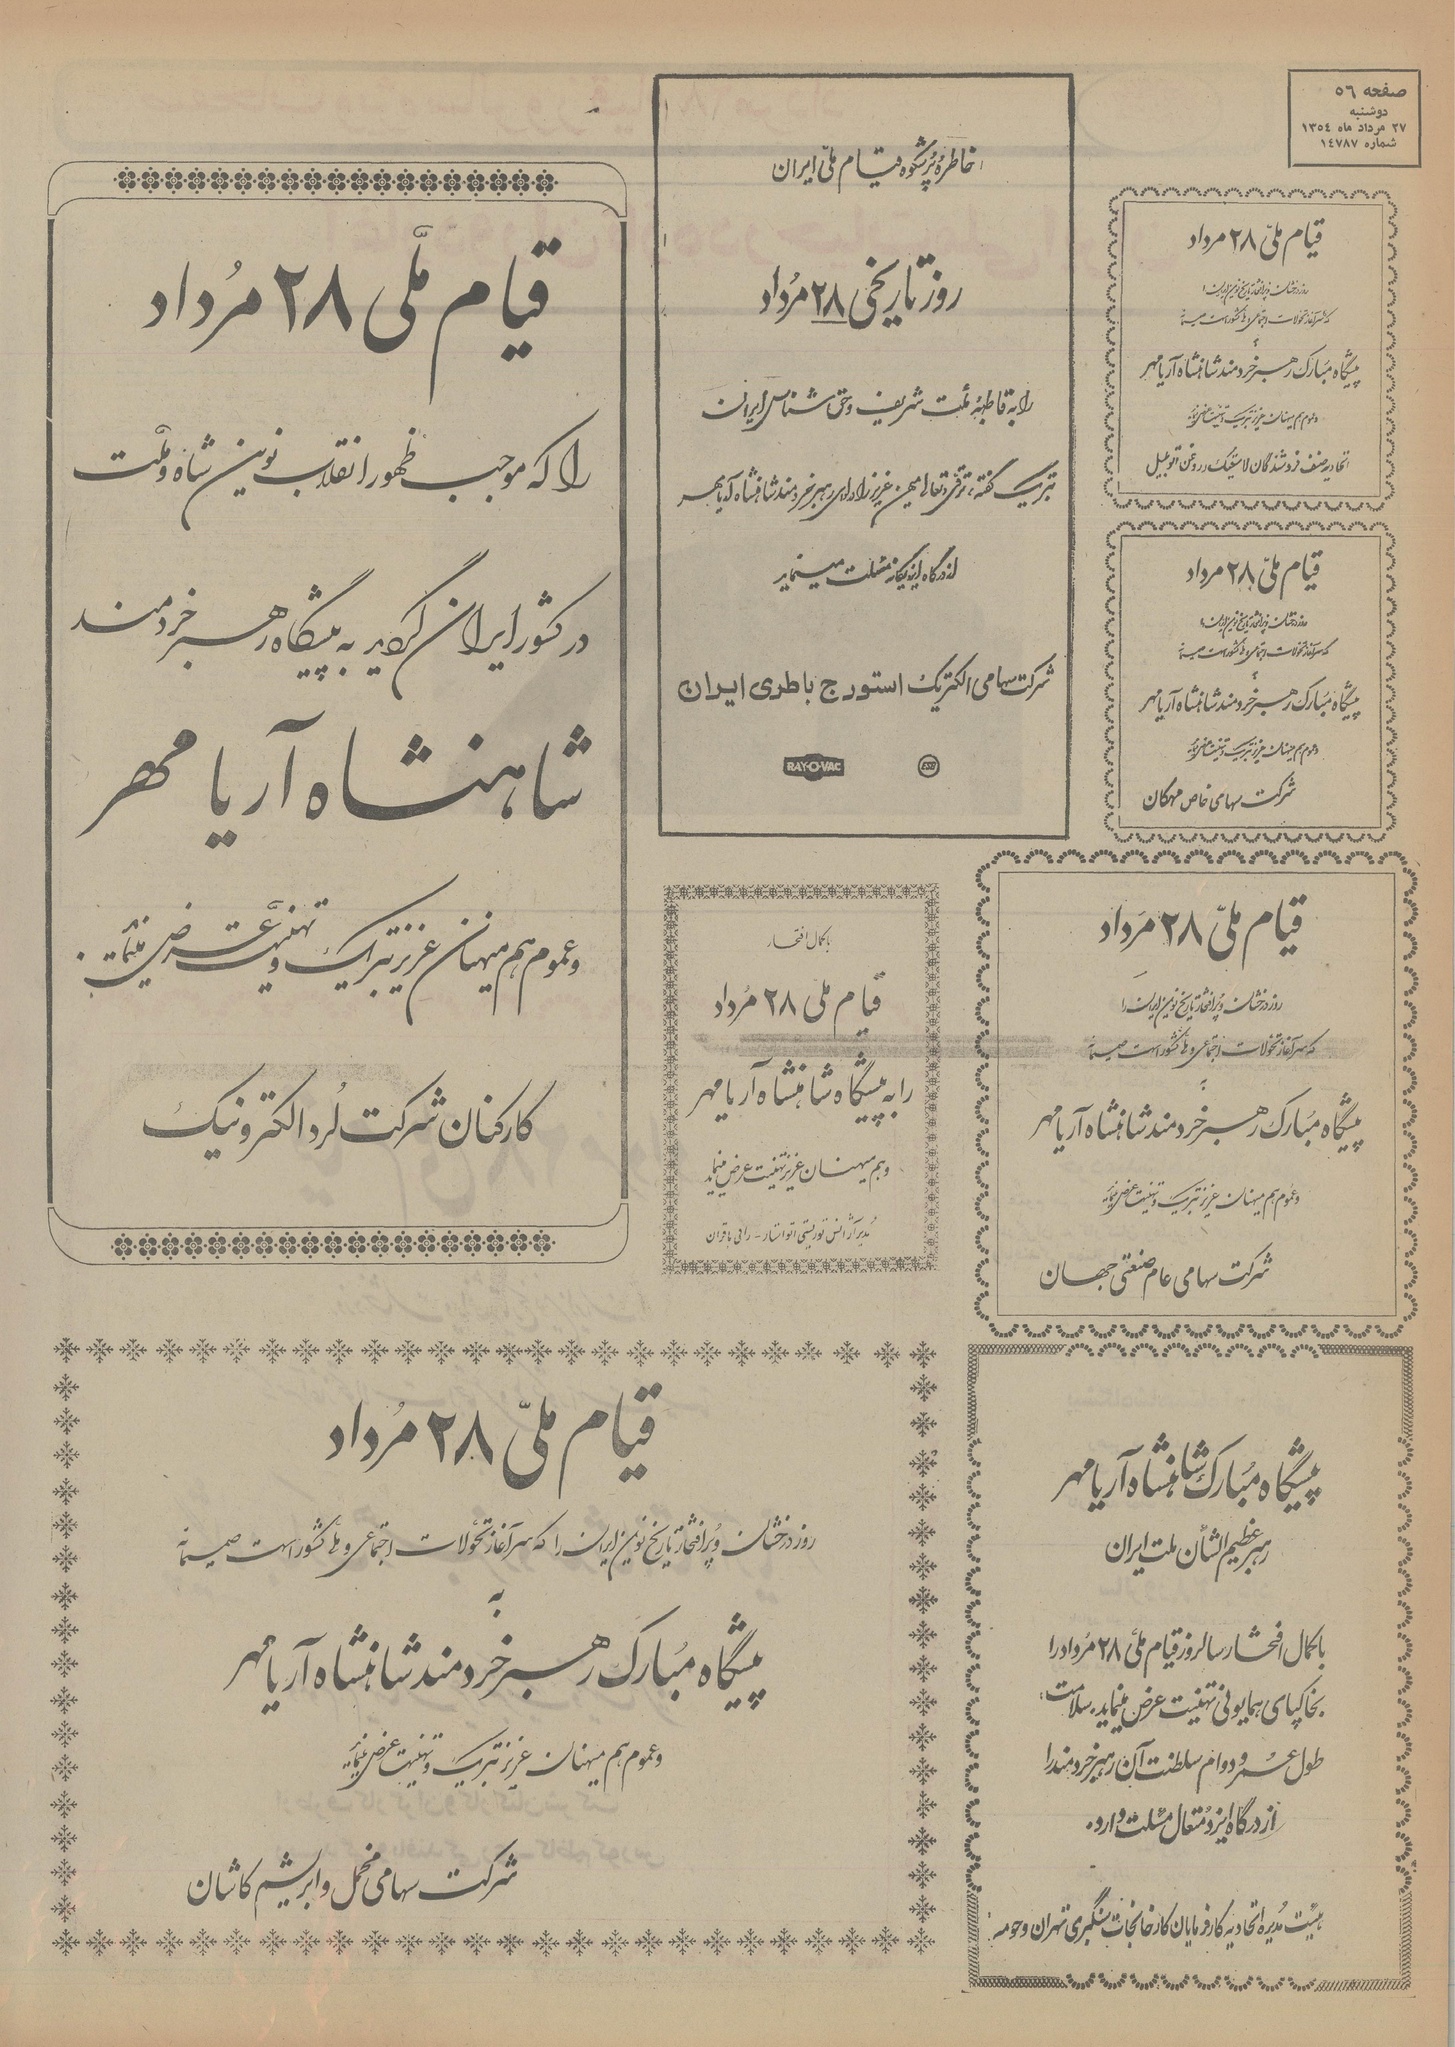 صفحه ٥٦
دوشنبه
٢٧ مرداد ماه ١٣٥٤
شماره ١٤٧٨٧
قیام ملّی ۲۸ مرداد
روز درخشان و پرافتخار تاریخ نوین ایران را
که سرآغاز تحولات اجتماعی و ملی کشور است صمیمانه
به
پیشگاه مبارک رهبر خردمند شاهنشاه آریامهر
و عموم هم میهنان عزیز تبریک و تهنیت عرض مینماید
اتحادیه صنف فروشندگان لاستیک و روغن اتومبیل
قیام ملّی ۲۸ مرداد
روز درخشان و پرافتخار تاریخ نوین ایران را
که سرآغاز تحولات اجتماعی و ملی کشور است صمیمانه
به
پیشگاه مبارک رهبر خردمند شاهنشاه آریامهر
و عموم هم میهنان عزیز تبریک و تهنیت عرض مینماید
شرکت سهامی خاص مهکان
قیام ملّی ۲۸ مرداد
روز درخشان و پُرافتخار تاریخ نوین ایران را
که سرآغاز تحولات اجتماعی و ملی کشور است صمیمانه
به
پیشگاه مبارک رهبر خردمند شاهنشاه آریامهر
و عموم هم میهنان عزیز تبریک و تهنیت عرض مینماید
شرکت سهامی عام صنعتی جهان
پیشگاه مبارک شاهنشاه آریامهر
رهبر عظیم الشأن ملت ایران
با کمال افتخار سالروز قیام ملی ۲۸ مرداد را
بخاکپای همایونی تهنیت عرض مینماید. سلامت،
طول عمر و دوام سلطنت آن رهبر خردمند را
از درگاه ایزد متعال مسئلت دارد.
هیئت مدیره اتحادیه کارفرمایان کارخانجات سنگبری تهران و حومه
خاطره پُرشکوه قیام ملّی ایران
روز تاریخی ۲۸ مُرداد
را به قاطبه ملت شریف و حق شناس ایران
تبریک گفته، ترقی و تعالی میهن عزیز را در لوای رهبر خردمند شاهنشاه آریامهر
از درگاه ایزد یگانه مسئلت مینماید
شرکت سهامی الکتریک استورج باطری ایران
RAY-O-VAC
ESB
با کمال افتخار
قیام ملی ۲۸ مُرداد
را به پیشگاه شاهنشاه آریامهر
و هم میهنان عزیز تهنیت عرض مینماید
مدیر آژانس توریستی اتو انتشار - رابی باقران
قیام ملّی ۲۸ مُرداد
را که موجب ظهور انقلاب نوین شاه و ملّت
در کشور ایران گردید به پیشگاه رهبر خردمند
شاهنشاه آریامهر
و عموم هم میهنان عزیز تبریک و تهنیت عرض مینمائیم.
کارکنان شرکت لُرد الکترونیک
قیام ملّی ۲۸ مُرداد
روز درخشان و پُرافتخار تاریخ نوین ایران را که سرآغاز تحولات اجتماعی و ملی کشور است صمیمانه
به
پیشگاه مبارک رهبر خردمند شاهنشاه آریامهر
و عموم هم میهنان عزیز تبریک و تهنیت عرض مینماید
شرکت سهامی مخمل و ابریشم کاشان